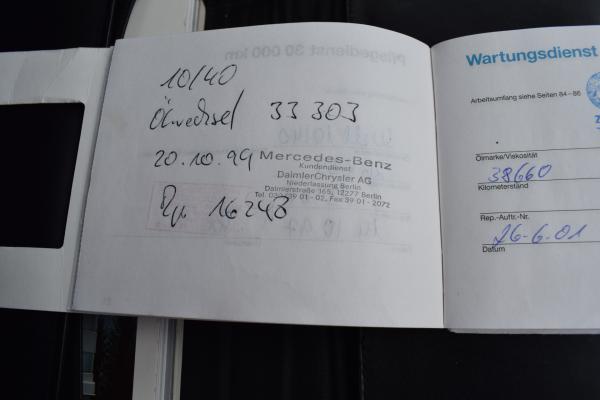 10/40
Ölwechsel 33 303
20.10.99
Mercedes-Benz
Kundendienst
DaimlerChrysler AG
Niederlassung Berlin
Daimlerstraße 165, 12277 Berlin
Tel. 030/39 01 - 02, Fax 39 01 - 2072
16243
Wartungsdienst
Arbeitsumfang siehe Seiten 84 - 86
Ölmarke/Viskosität
38660
Kilometerstand
Rep.-Auftr.-Nr.
26-6-01
Datum